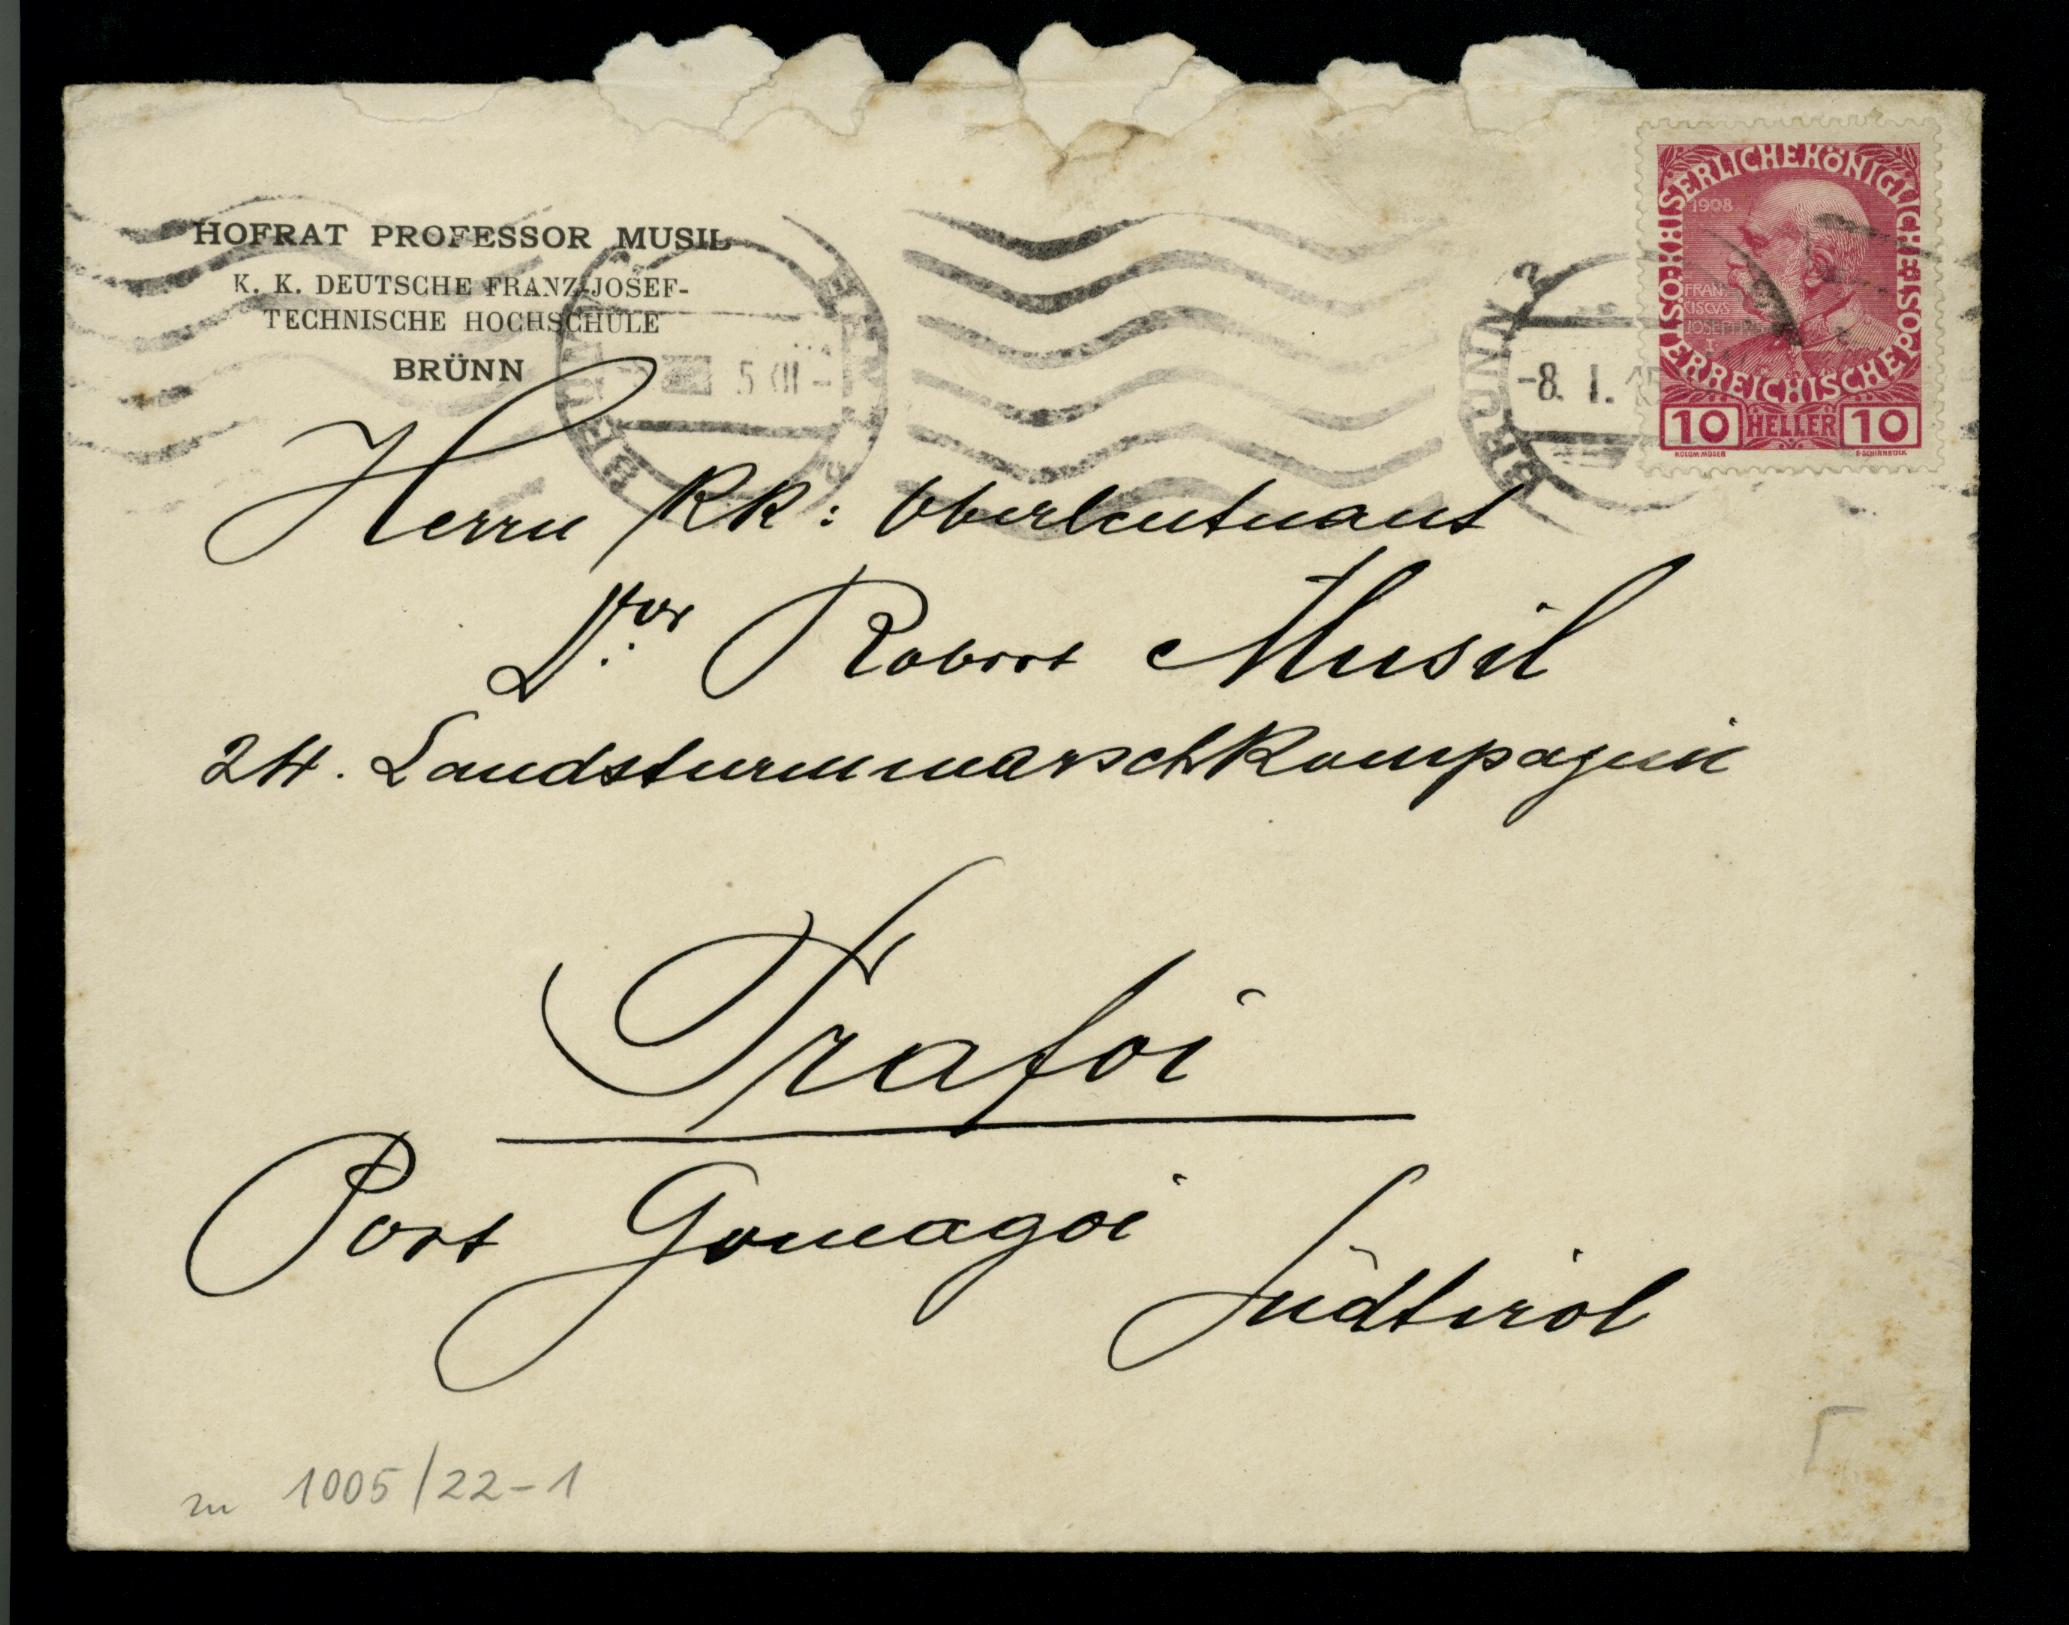 HOFRAT PROFESSOR MUSIL
K. K. DEUTSCHE FRANZ-JOSEF-
TECHNISCHE HOCHSCHULE
BRÜNN
BRÜNN 2
-8. I. 15
KAISERLICHE KÖNIGLICHE ÖSTERREICHISCHE POST
1908
FRAN
CISCVS
JOSEPHVS
I
10 HELLER 10
KOLOM. MOSER
F. SCHIRNBÖCK
Herrn KK: Oberleutnant
Dr. Robert Musil
24. Landsturmmarschkompagnie
Trafoi
Post Gomagoi
Südtirol
zu 1005/22-1